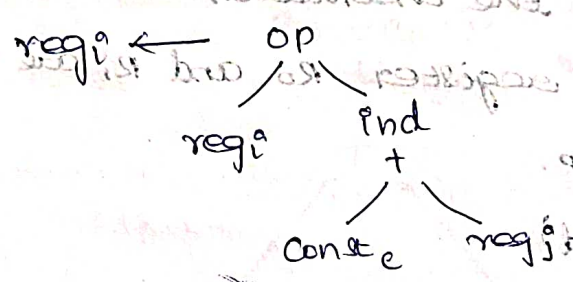 regi ← op
regi ind
+
Const c regj